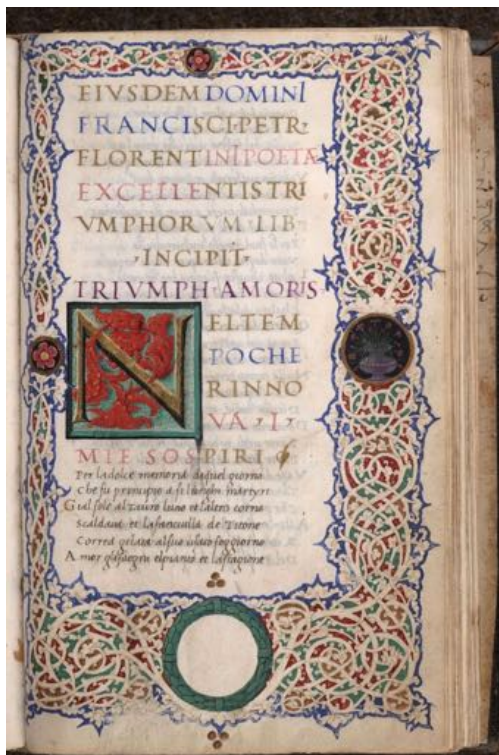 141
EIVSDEM DOMINI
FRANCISCI·PETR·
FLORENTINI POETÆ
EXCELLENTIS TRI
VMPHORVM·LIB·
·INCIPIT·
TRIVMPH·AMORIS
NEL TEM
PO CHE
RINNO
VA·I·
MIE SOSPIRI
Per la dolce memoria di quel giorno
Che fu principio a si lunghi martyri
Gia il sole al Tauro luno et laltro corno
Scaldaua et la fanciulla de Titone
Correa gelata al suo usato soggiorno
Amor gli sdegni el pianto et la stagione